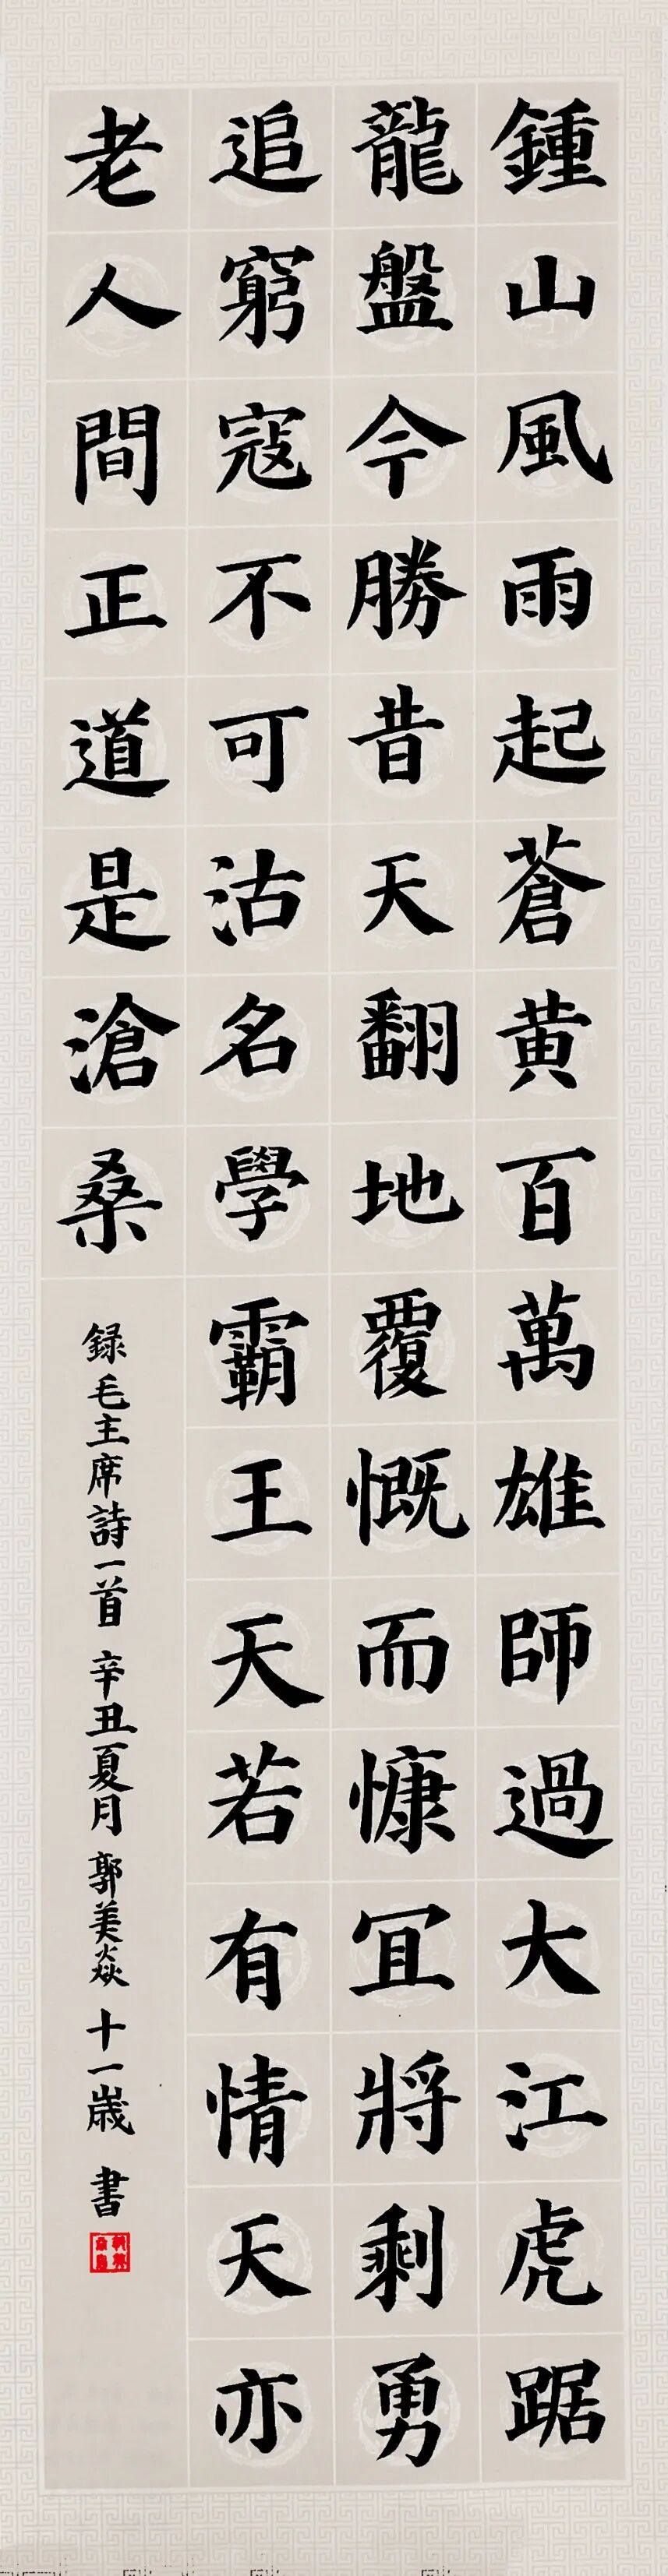 鍾山風雨起蒼黄百萬雄師過大江虎踞
龍盤今勝昔天翻地覆慨而慷宜將剩勇
追窮寇不可沽名學霸王天若有情天亦
老人間正道是滄桑
録毛主席詩一首 辛丑夏月 郭美焱 十一歲 書